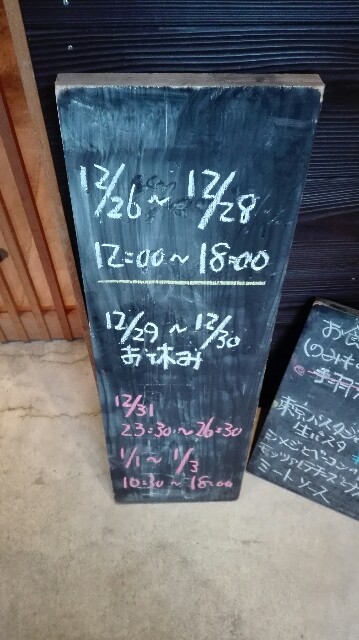 12/26~12/28
12:00~18:00
12/29~12/30
お休み
12/31
23:30~26:30
1/1~1/3
10:30~18:00
東京パスタ
生パスタ
シメジとベーコン
モッツァレラチーズ
ミートソース